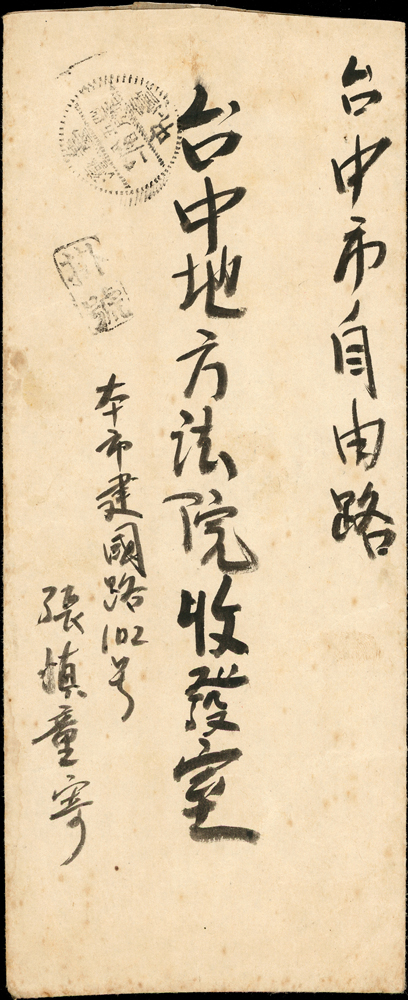 台中市自由路
台中地方法院收發室
本市建國路102号
張慎童寄